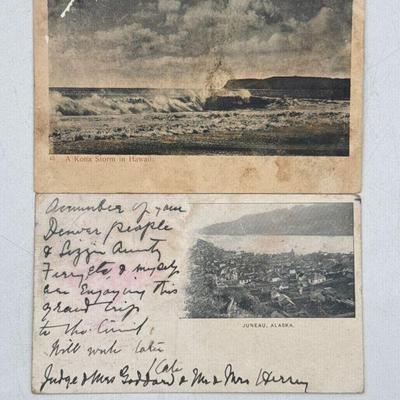 A Kona Storm in Hawaii.
A number of your
Denver people
& Lizzie Aunty
& myself
are Enjoying this
grand trip
to the
Will write later
JUNEAU, ALASKA.
Judge & Mrs Goddard & Mr & Mrs